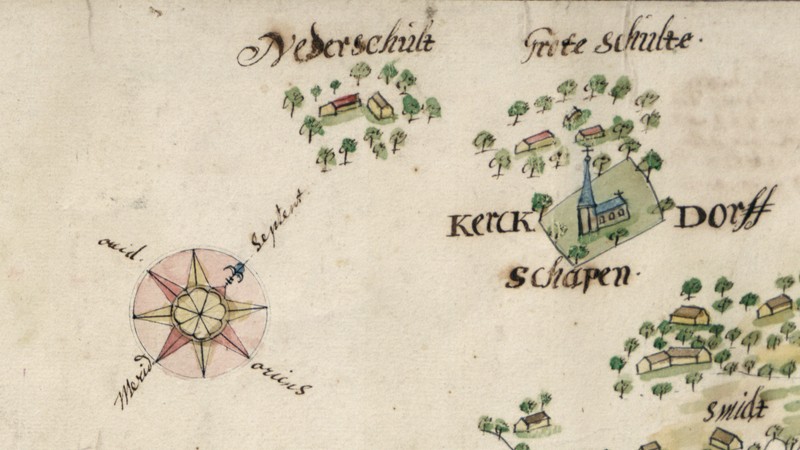 Nederschult
Grote Schulte.
Septent
KercK DOrff
Schapen.
ouid.
Merid
oriens
smidt